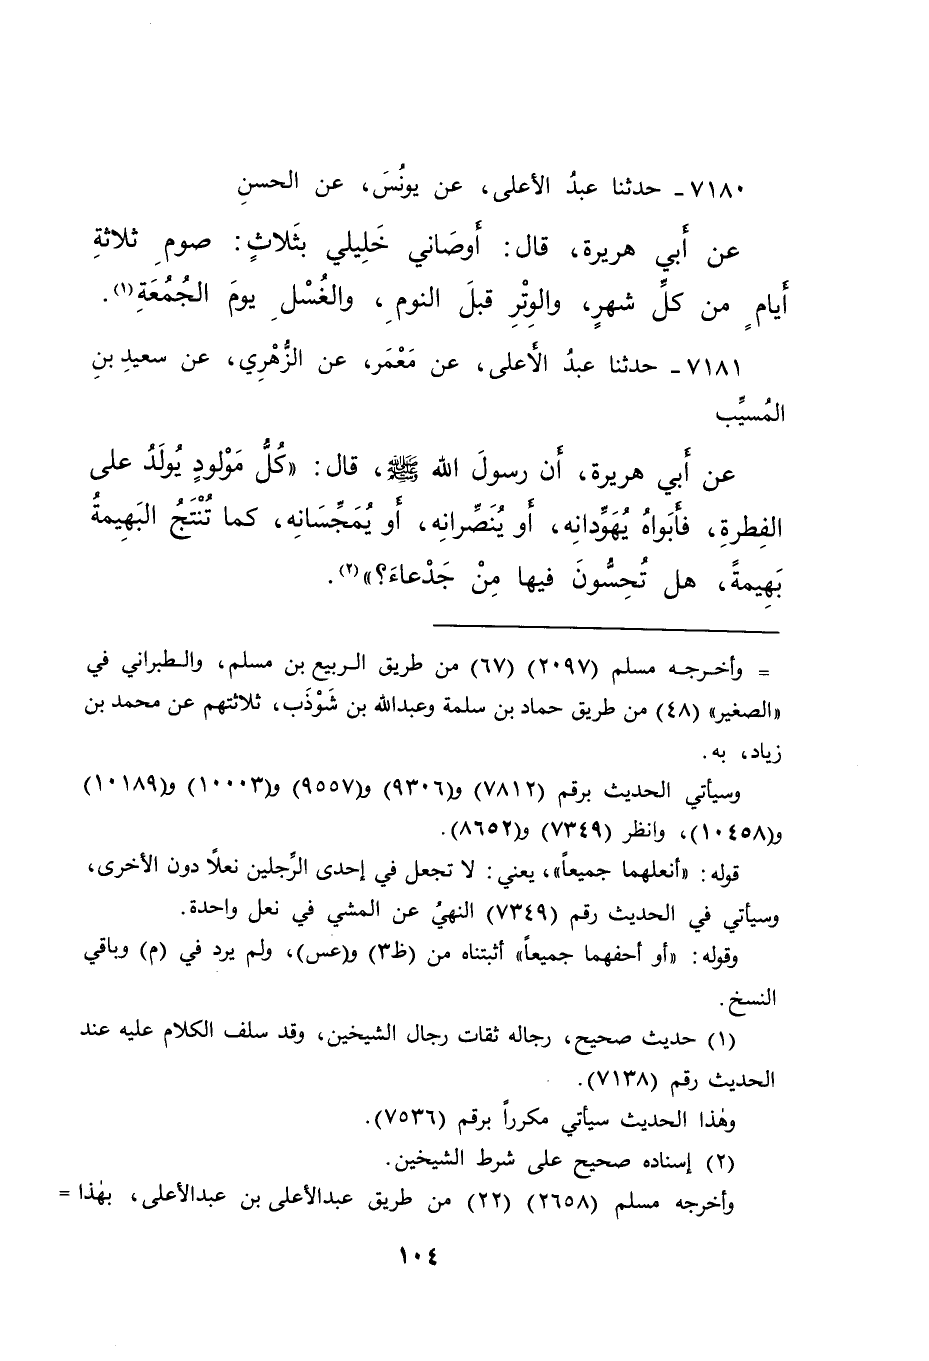 ٧١٨٠ - حدثنا عبدُ الأعلى، عن يونُسَ، عن الحسنِ
عن أَبي هريرة، قال: أَوصَاني خَلِيلي بثَلاثٍ: صومِ ثلاثةِ
أَيامٍ من كلِّ شهرٍ، والوِتْرِ قبلَ النومِ، والغُسْلِ يومَ الجُمُعَةِ(١).
٧١٨١ - حدثنا عبدُ الأَعلى، عن مَعْمَر، عن الزُّهْرِي، عن سعيدِ بنِ
المُسيِّب
عن أَبي هريرة، أَن رسولَ الله ﷺ، قال: «كُلُّ مَوْلودٍ يُولَدُ على
الفِطرةِ، فأَبواهُ يُهَوِّدانِه، أَو يُنَصِّرانِه، أَو يُمَجِّسَانِه، كما تُنْتَجُ البَهِيمةُ
بَهِيمةً، هل تُحِسُّونَ فيها مِنْ جَدْعاءَ؟»(٢).
= وأخرجه مسلم (٢٠٩٧) (٦٧) من طريق الربيع بن مسلم، والطبراني في
«الصغير» (٤٨) من طريق حماد بن سلمة وعبدالله بن شَوْذَب، ثلاثتهم عن محمد بن
زياد، به.
وسيأتي الحديث برقم (٧٨١٢) و(٩٣٠٦) و(٩٥٥٧) و(١٠٠٠٣) و(١٠١٨٩)
و(١٠٤٥٨)، وانظر (٧٣٤٩) و(٨٦٥٢).
قوله: «أنعلهما جميعاً»، يعني: لا تجعل في إحدى الرِّجلين نعلًا دون الأخرى،
وسيأتي في الحديث رقم (٧٣٤٩) النهيُ عن المشي في نعل واحدة.
وقوله: «أو أحفهما جميعاً» أثبتناه من (ظ٣) و(عس)، ولم يرد في (م) وباقي
النسخ.
(١) حديث صحيح، رجاله ثقات رجال الشيخين، وقد سلف الكلام عليه عند
الحديث رقم (٧١٣٨).
وهٰذا الحديث سيأتي مكرراً برقم (٧٥٣٦).
(٢) إسناده صحيح على شرط الشيخين.
وأخرجه مسلم (٢٦٥٨) (٢٢) من طريق عبدالأعلى بن عبدالأعلى، بهٰذا =
١٠٤